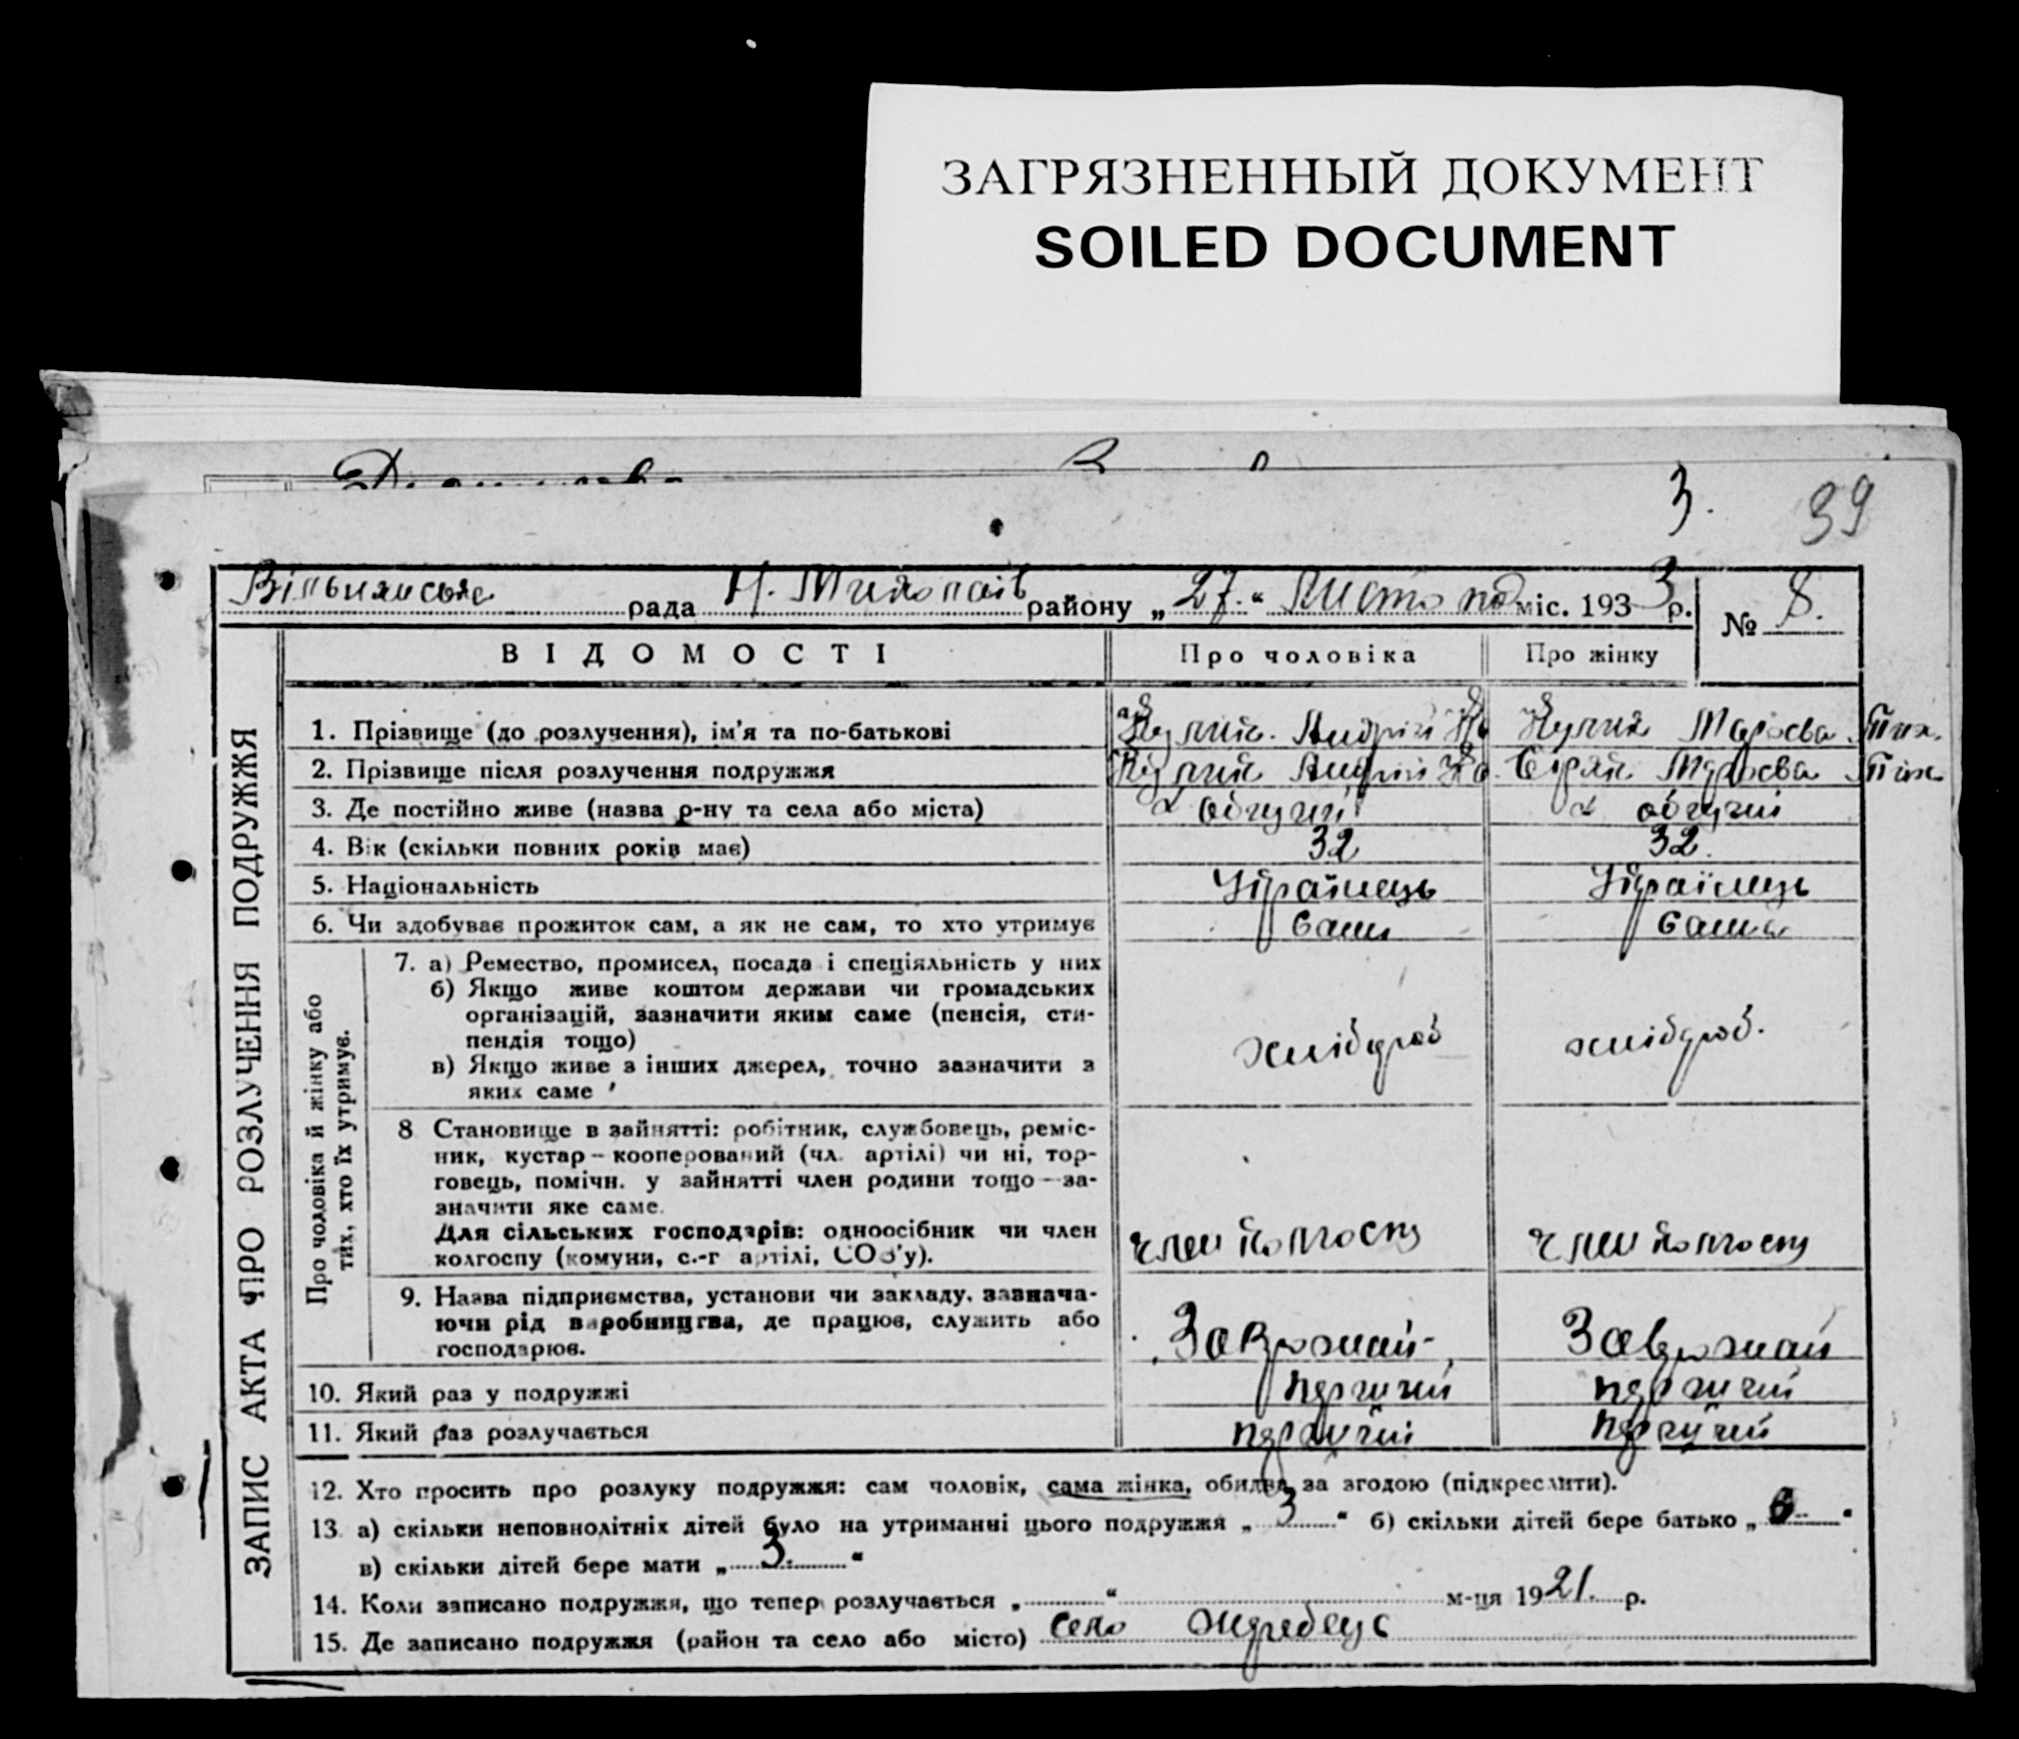 ЗАГРЯЗНЕННЫЙ ДОКУМЕНТ
SOILED DOCUMENT
3. 39
рада Н. районy „27.“ міс. 1933 р. № 8.
ЗАПИС АКТА ПРО РОЗЛУЧЕННЯ ПОДРУЖЖЯ
ВІДОМОСТІ Про чоловіка Про жінку
1. Прізвище (до розлучення), ім'я та по-батькові Андрій
2. Прізвище після розлучення подружжя Андрій
3. Де постійно живе (назва р-ну та села або міста)
4. Вік (скільки повних років має) 32 32.
5. Національність Українець Українець
6. Чи здобуває прожиток сам, а як не сам, то хто утримує сам сама
Про чоловіка й жінку або
тих, хто їх утримує.
7. а) Ремество, промисел, посада і спеціяльність у них
б) Якщо живе коштом держави чи громадських
організацій, зазначити яким саме (пенсія, сти-
пендія тощо)
в) Якщо живе з інших джерел, точно зазначити з
яких саме
хлібороб хлібороб.
8 Становище в зайнятті: робітник, службовець, реміс-
ник, кустар – кооперований (чл. артілі) чи ні, тор-
говець, помічн. у зайнятті член родини тощо – за-
значити яке саме.
Для сільських господарів: одноосібник чи член
колгоспу (комуни, с.-г артілі, СОЗ'у).
член колгоспу член колгоспу
9. Назва підприємства, установи чи закладу, зазнача-
ючи рід виробництва, де працює, служить або
господарює.
10. Який раз у подружжі
11. Який раз розлучається
12. Хто просить про розлуку подружжя: сам чоловік, сама жінка, обидва за згодою (підкреслити).
13. а) скільки неповнолітніх дітей було на утриманні цього подружжя „3“ б) скільки дітей бере батько „
в) скільки дітей бере мати „3.“
14. Коли записано подружжя, що тепер розлучається „ “ м-ця 1921. р.
15. Де записано подружжя (район та село або місто) село Жеребець